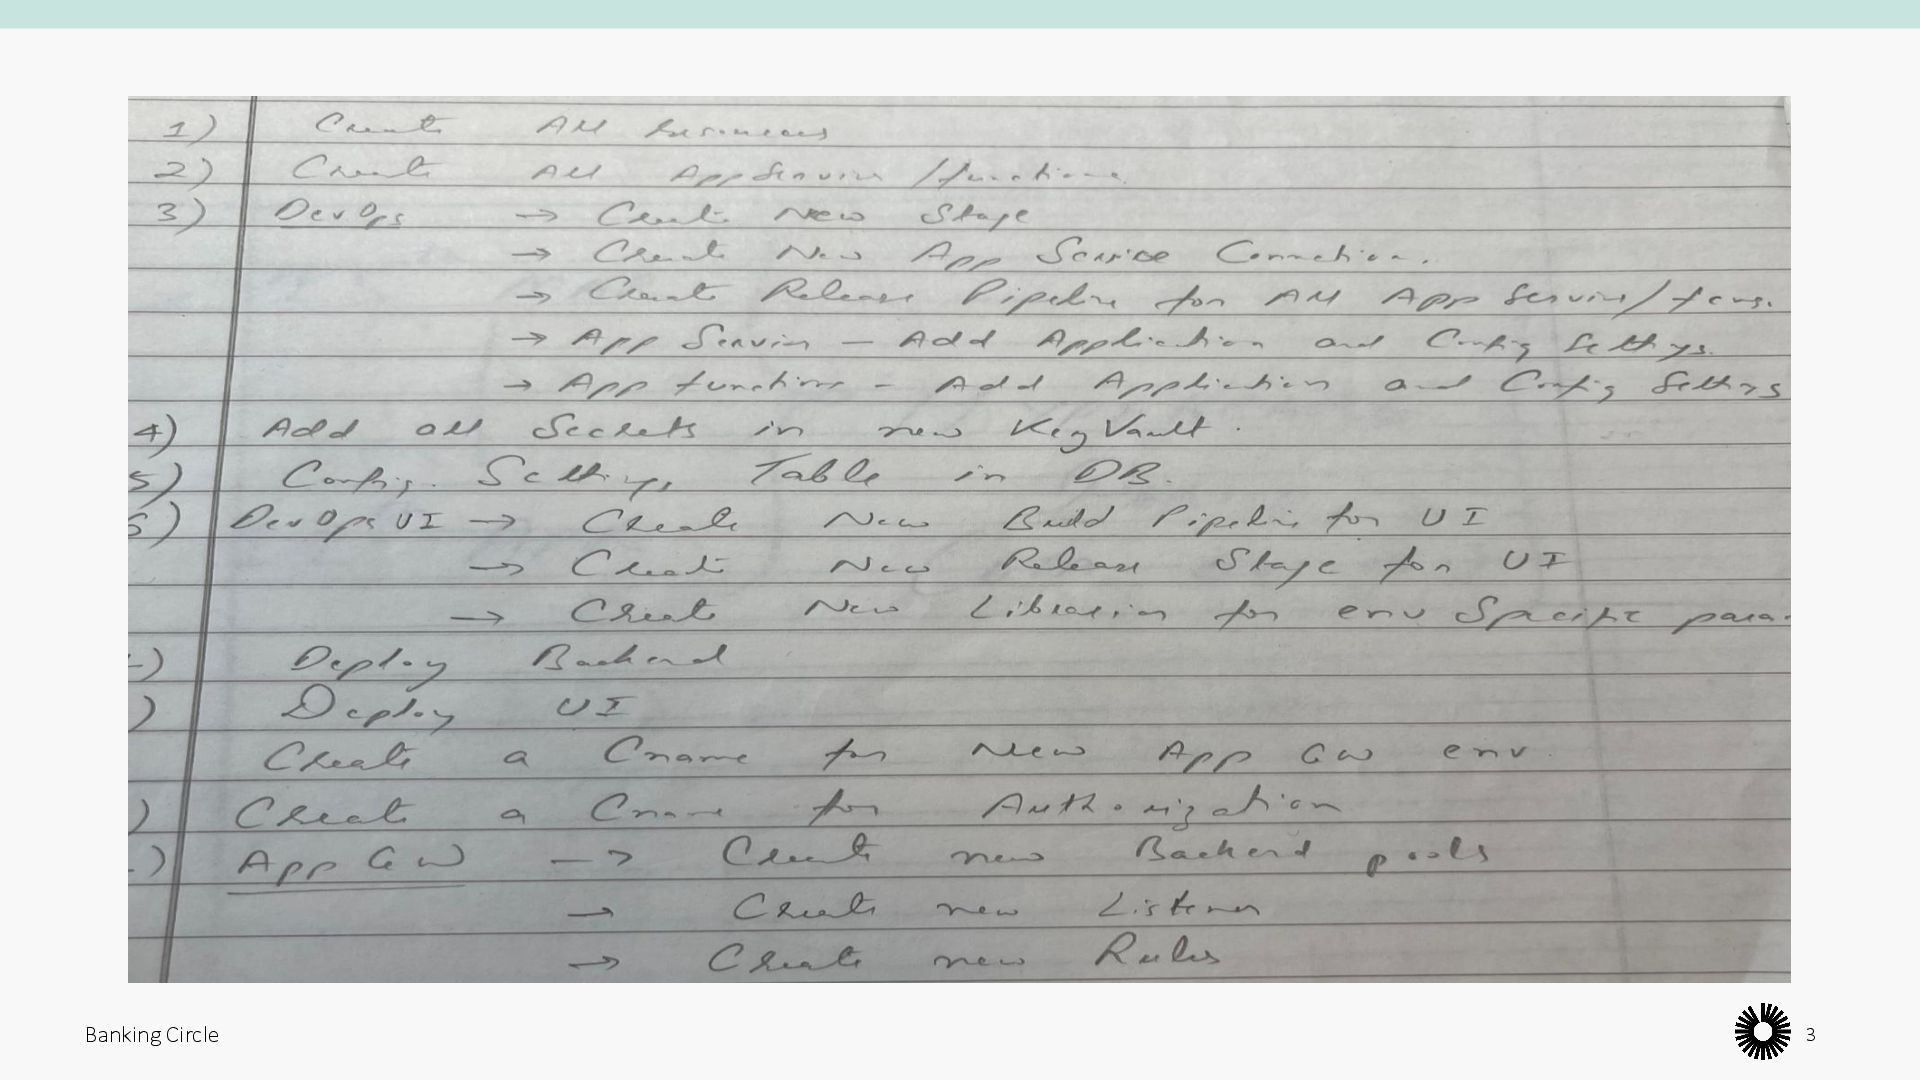 1) Create All
2) Create All AppServices /functions
3) DevOps → Create New Stage
→ Create New App Service Connection.
→ Create Release Pipeline for All App Services/funs.
→ App Servics - Add Application and Config Settings.
→ App functions - Add Application and Config Settings
4) Add all Secrets in new KeyVault.
5) Config. Settings Table in DB.
6) DevOps UI → Create New Build Pipeline for UI
→ Create New Release Stage for UI
→ Create New Libraries for env Specific para.
) Deploy Backend
) Deploy UI
Create a Cname for New App GW env.
) Create a Cname for Authorization
) App GW → Create new Backend pools
→ Create new Listener
→ Create new Rules
Banking Circle
3